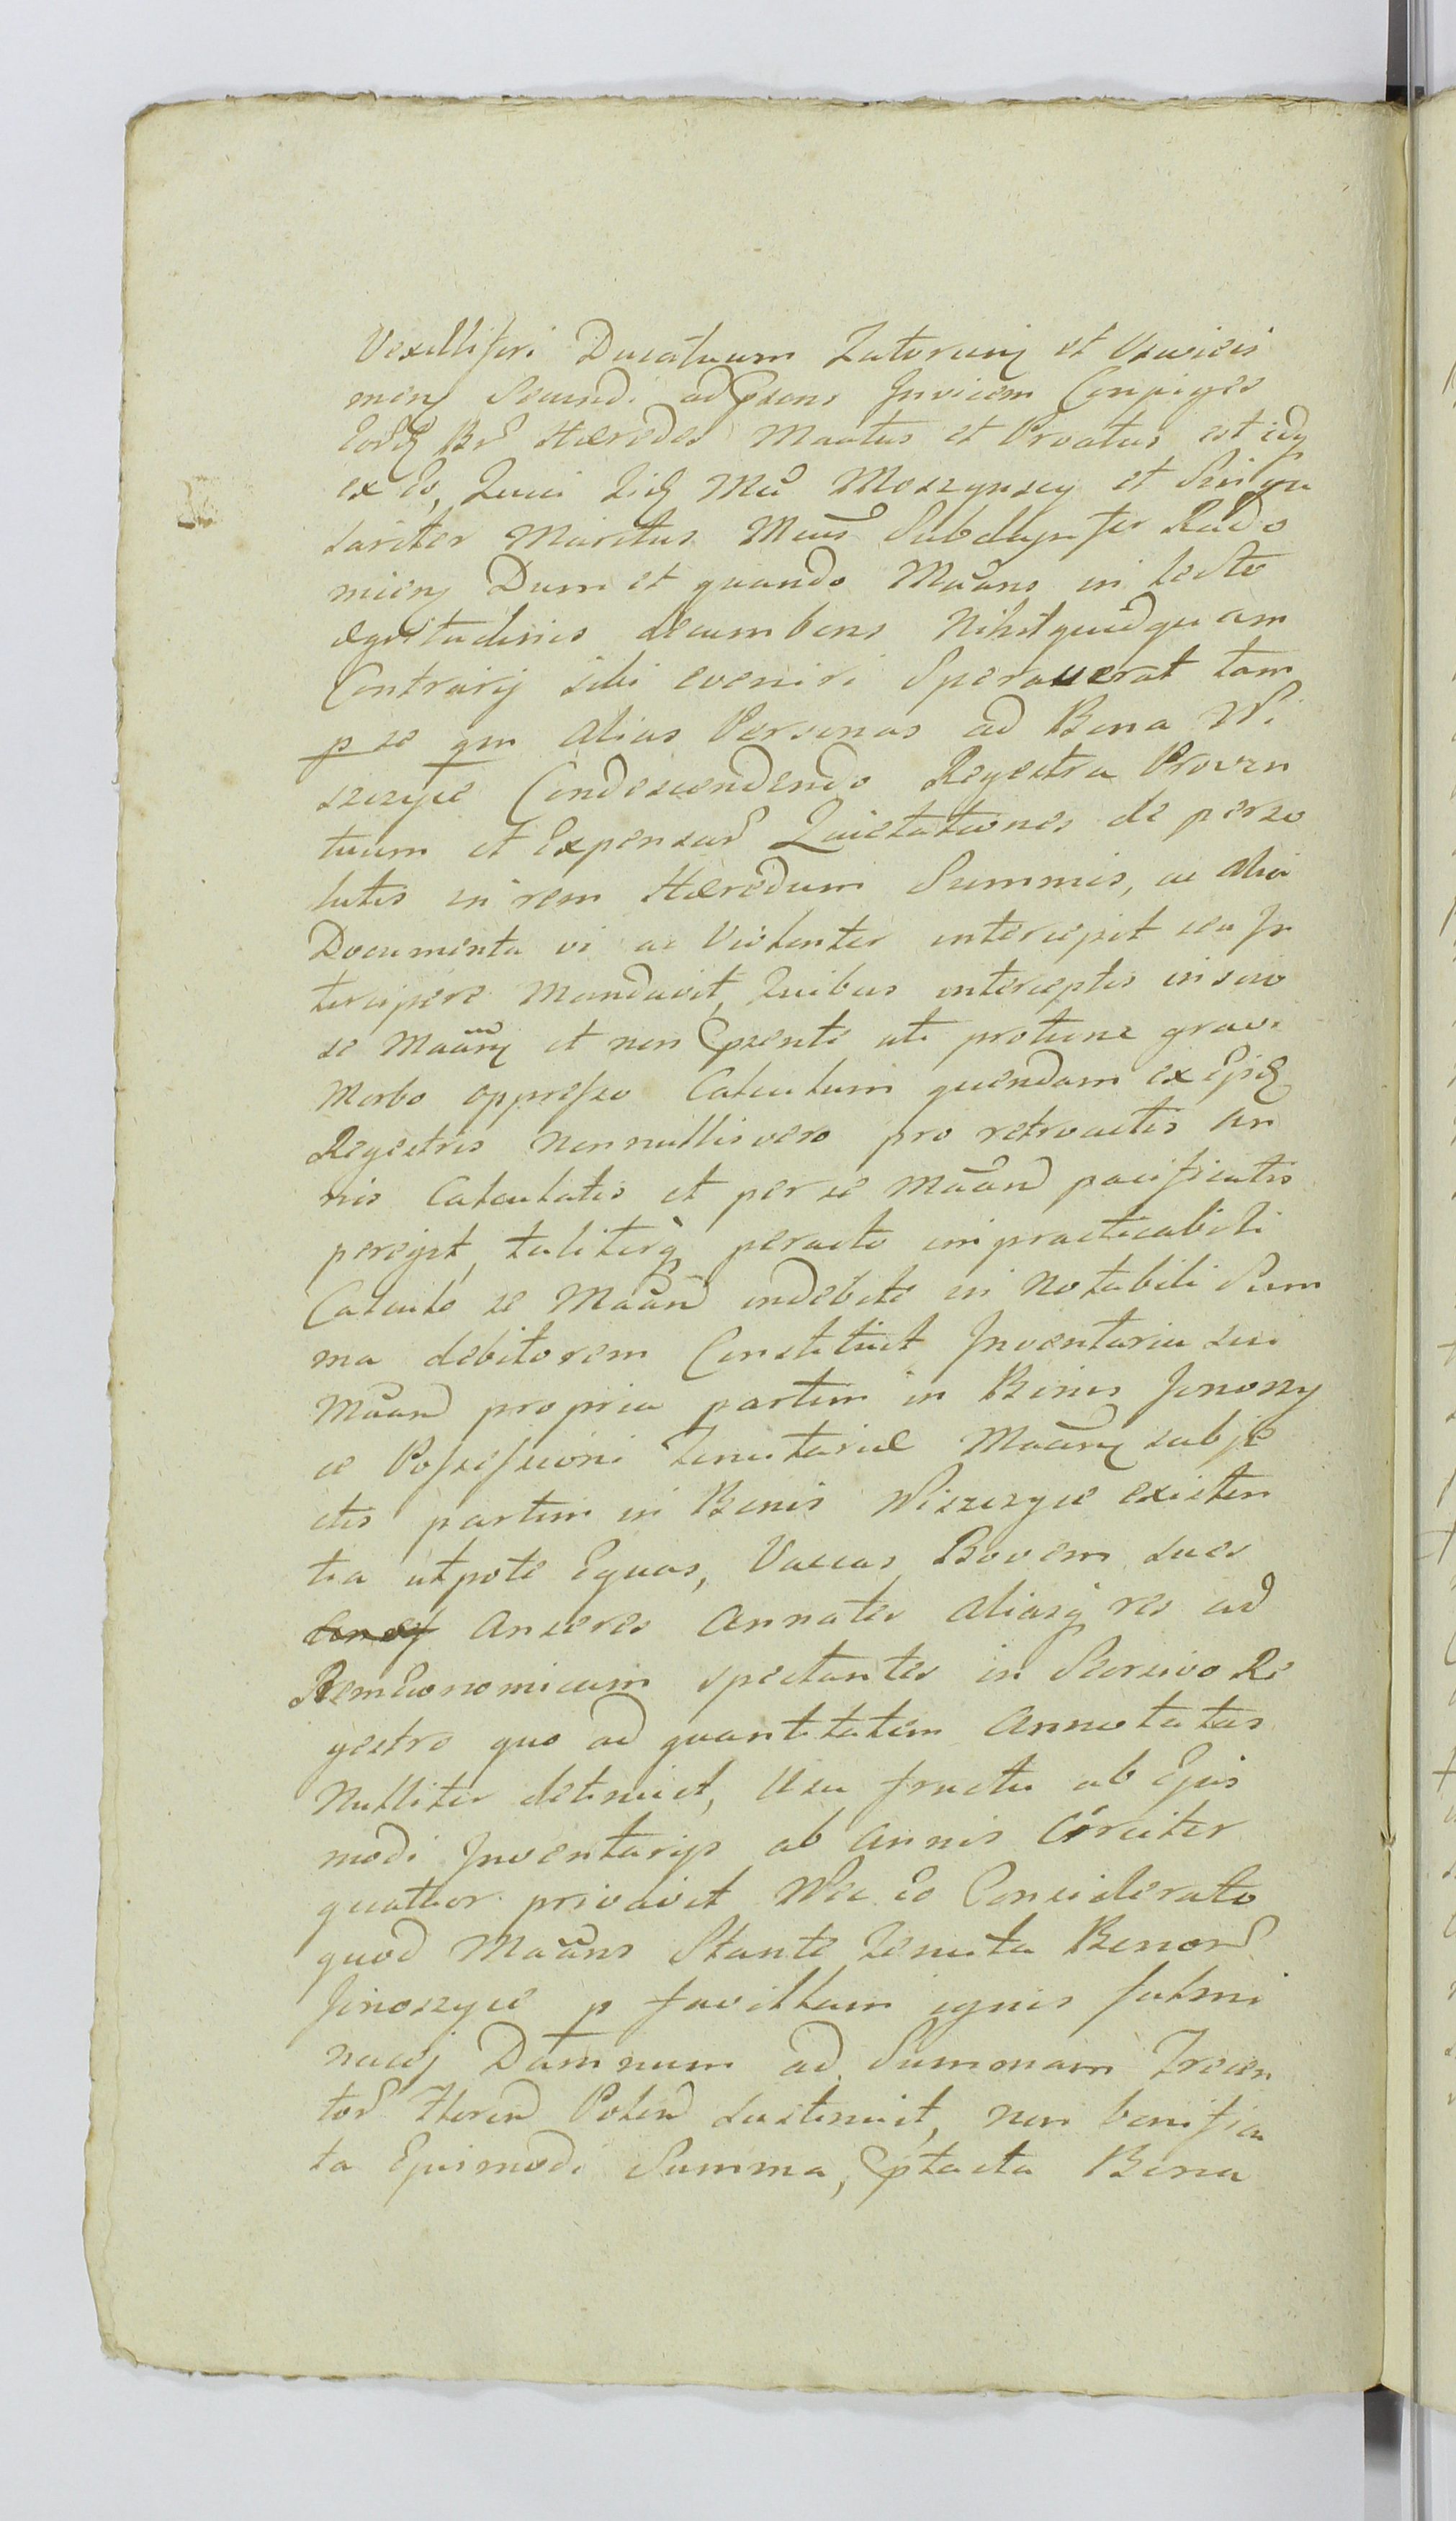 Vexilliferi Ducatuum Zatorien et Osvieci
men Secundi ad Psens Invicem Conjuges
Eord Br Hæredes Maatus et Proatus est idq
ex Eo, Quia Ziq Mu Moszynscy et Singu
lariter Maritus Mcus Subdapifer Rado
mien Dum et quando Maans in lecto
ægritudinis decumbens Nihil quidquam
Contrarij sibi eveniri Speraverat tam
p se qm alias Personas ad Bona Wi
szczyce Condescendendo Regestra Proven
tuum et Expensar Quietationes de perso
lutis in rem Hæredum Summis, ac alia
Documenta vi ac Violenter intercepit seu In
tercipere Mandavit, Quibus interceptis inscio
se Maan et non Psente uti protunc gravi
Morbo oppresso Calculum quendam ex Ejsd
Regestris nonnullis vero pro retroactis an
nis Calculatis et per se Maand pacificatis
peregit, taliterq peracto impracticabili
Calculo se Maand indebite in Notabili Sum
ma debitorem Constituit Inventaria sui
Maand propria partim in Bonis Jnoszy
ce Possessioni Tenutariæ Maan subje
ctis partim in Bonis Wiszczyce existen
tia utpote Equas, Vaccas, Bovem sues
Anseres Annates aliasq res ad
Rem Economicam spectantes in Seorsivo Re
gestro quo ad quantitatem Annotatas
Nulliter detinuit, Usu fructu ab Ejus
modi Inventarijs ab annis Circiter
quatuor privavit Nec Eo Considerato
quod Maans Stante Tenuta Bonor
Jnoszyce p favillam ignis fulmi
nacej Damnum ad Summam Trecen
tor Floren Polon sustinuit, non bonifica
ta Ejusmodi Summa, Ptacta Bona